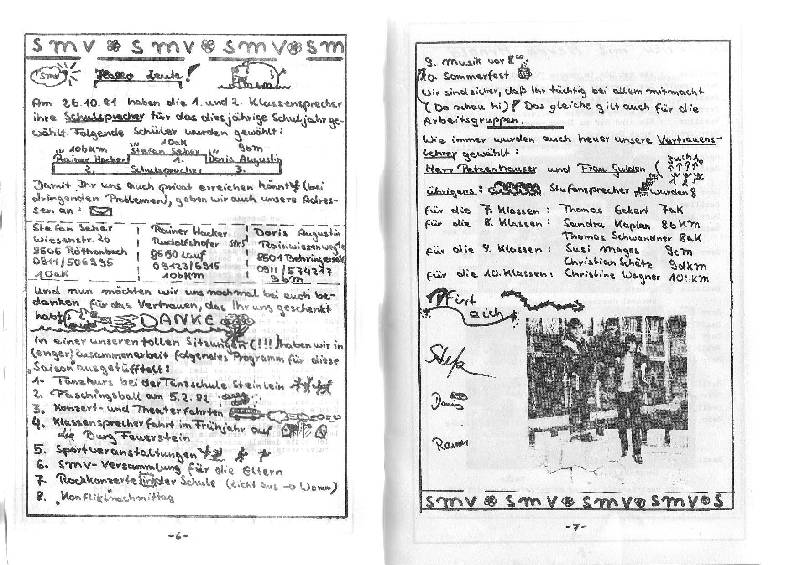 SMV SMV SMV SM
SMV Hallo Leute!
Am 26.10.81 haben die 1. und 2. Klassensprecher
ihre Schulsprecher für das diesjährige Schuljahr ge-
wählt. Folgende Schüler wurden gewählt:
10bkm 10ak 9bm
Rainer Hacker Stefan Seher Doris Augustin
2. 1. 3.
Schulsprecher
Damit Ihr uns auch privat erreichen könnt (bei
dringenden Problemen), geben wir auch unsere Adres-
sen an:
Stefan Seher
Wiesenstr. 20
8505 Röthenbach
0911/506995
10ak
Rainer Hacker
Rudolfshofer Str5
8560 Lauf
09123/6915
10bkm
Doris Augustin
8501 Behringersdf
0911/574277
9bm
Und nun möchten wir uns nochmal bei euch be-
danken für das Vertrauen, das Ihr uns geschenkt
habt DANKE
In einer unseren tollen Sitzungen (!!!) haben wir in
(enger) zusammenarbeit folgendes Programm für diese
Saison ausgetüftelt:
1- Tanzkurs bei der Tanzschule Steinlein
2. Faschingsball am 5.2.82
3. Konzert- und Theaterfahrten
4. Klassensprecherfahrt im Frühjahr auf
die Burg Feuerstein
5. Sportveranstaltungen
6. SMV-Versammlung für die Eltern
7. Rockkonzerte in der Schule (Licht aus -o Womm)
8. Konfliktnachmittag
-6-
9. Musik vor 8⁰⁰
10. Sommerfest
Wir sind sicher, daß Ihr tüchtig bei allem mitmacht
(Da schau hi)! Das gleiche gilt auch für die
Arbeitsgruppen.
Wie immer wurden auch heuer unsere Vertrauens-
lehrer gewählt:
Herr Petzenhauser und Frau Gulden
übrigens: Stufensprecher wurden
für die 7. Klassen: Thomas Eckert 7aK
für die 8. Klassen: Sandra Kaplan 8bKM
Thomas Schwandner 8aK
für die 9. Klassen: Susi Mages 9cm
Christian Schütz 9dkm
für die 10. Klassen: Christine Wagner 10ckm
Pfirt
eich
Stef
Rainer
SMV SMV SMV SMV S
-7-